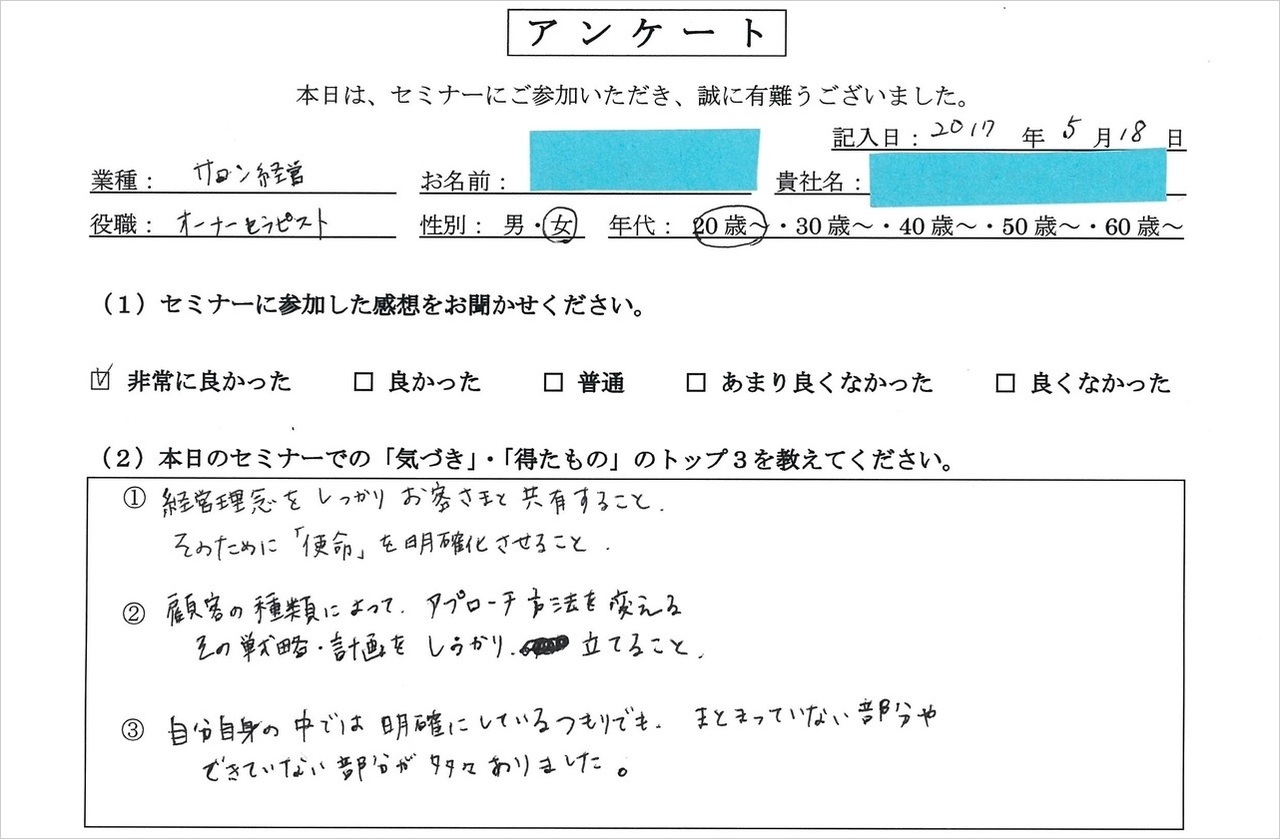 アンケート
本日は、セミナーにご参加いただき、誠に有難うございました。
記入日：2017 年 5 月 18 日
業種： サロン経営 お名前： 貴社名：
役職： オーナーセラピスト 性別： 男・女 年代： 20歳～・30歳～・40歳～・50歳～・60歳～
（1）セミナーに参加した感想をお聞かせください。
☑ 非常に良かった □ 良かった □ 普通 □ あまり良くなかった □ 良くなかった
（2）本日のセミナーでの「気づき」・「得たもの」のトップ3を教えてください。
① 経営理念をしっかりお客さまと共有すること.
そのために「使命」を明確化させること.
② 顧客の種類によって. アプローチ方法を変える
その戦略・計画をしっかり. 立てること.
③ 自分自身の中では明確にしているつもりでも. まとまっていない部分や
できていない部分が多々ありました。